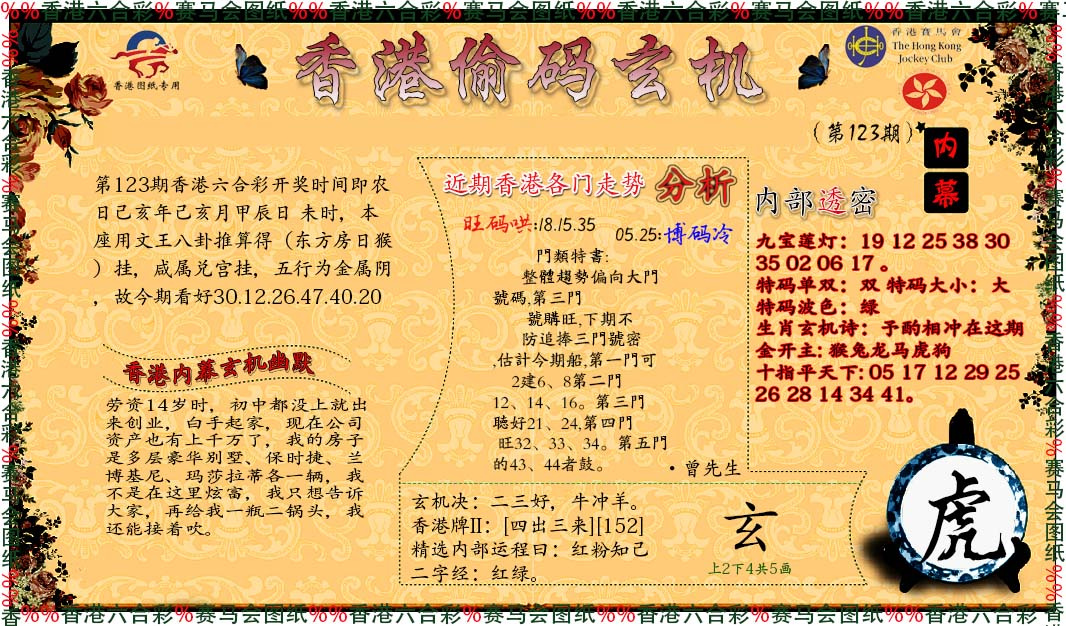 %%香港六合彩%赛马会图纸%%香港六合彩%赛马会图纸%%香港六合彩%赛马会图纸%%香港六合彩%赛马
香港图纸专用
香港偷码玄机
香港賽馬會
The Hong Kong
Jockey Club
(第123期)
内幕
第123期香港六合彩开奖时间即农
日己亥年己亥月甲辰日 未时，本
座用文王八卦推算得（东方房日猴
）挂，咸属兑宫挂，五行为金属阴
，故今期看好30.12.26.47.40.20
香港内幕玄机幽默
劳资14岁时，初中都没上就出
来创业，白手起家，现在公司
资产也有上千万了，我的房子
是多层豪华别墅、保时捷、兰
博基尼、玛莎拉蒂各一辆，我
不是在这里炫富，我只想告诉
大家，再给我一瓶二锅头，我
还能接着吹。
近期香港各门走势 分析
旺码哄:18.15.35
05.25:博码冷
門類特書:
整體趨勢偏向大門
號碼,第三門
號購旺,下期不
防追捧三門號密
,估計今期船,第一門可
2建6、8第二門
12、14、16。第三門
聽好21、24,第四門
旺32、33、34。第五門
的43、44者鼓。
·曾先生
内部透密
九宝莲灯：19 12 25 38 30
35 02 06 17 。
特码单双：双 特码大小：大
特码波色：绿
生肖玄机诗：予酌相冲在这期
金开主: 猴兔龙马虎狗
十指平天下: 05 17 12 29 25
26 28 14 34 41。
玄机决：二三好，牛冲羊。
香港牌II：[四出三来][152]
精选内部运程曰：红粉知己
二字经：红绿。
玄
上2下4共5画
虎
香%%香港六合彩%赛马会图纸%%香港六合彩%赛马会图纸%%香港六合彩%赛马会图纸%%香港六合彩%